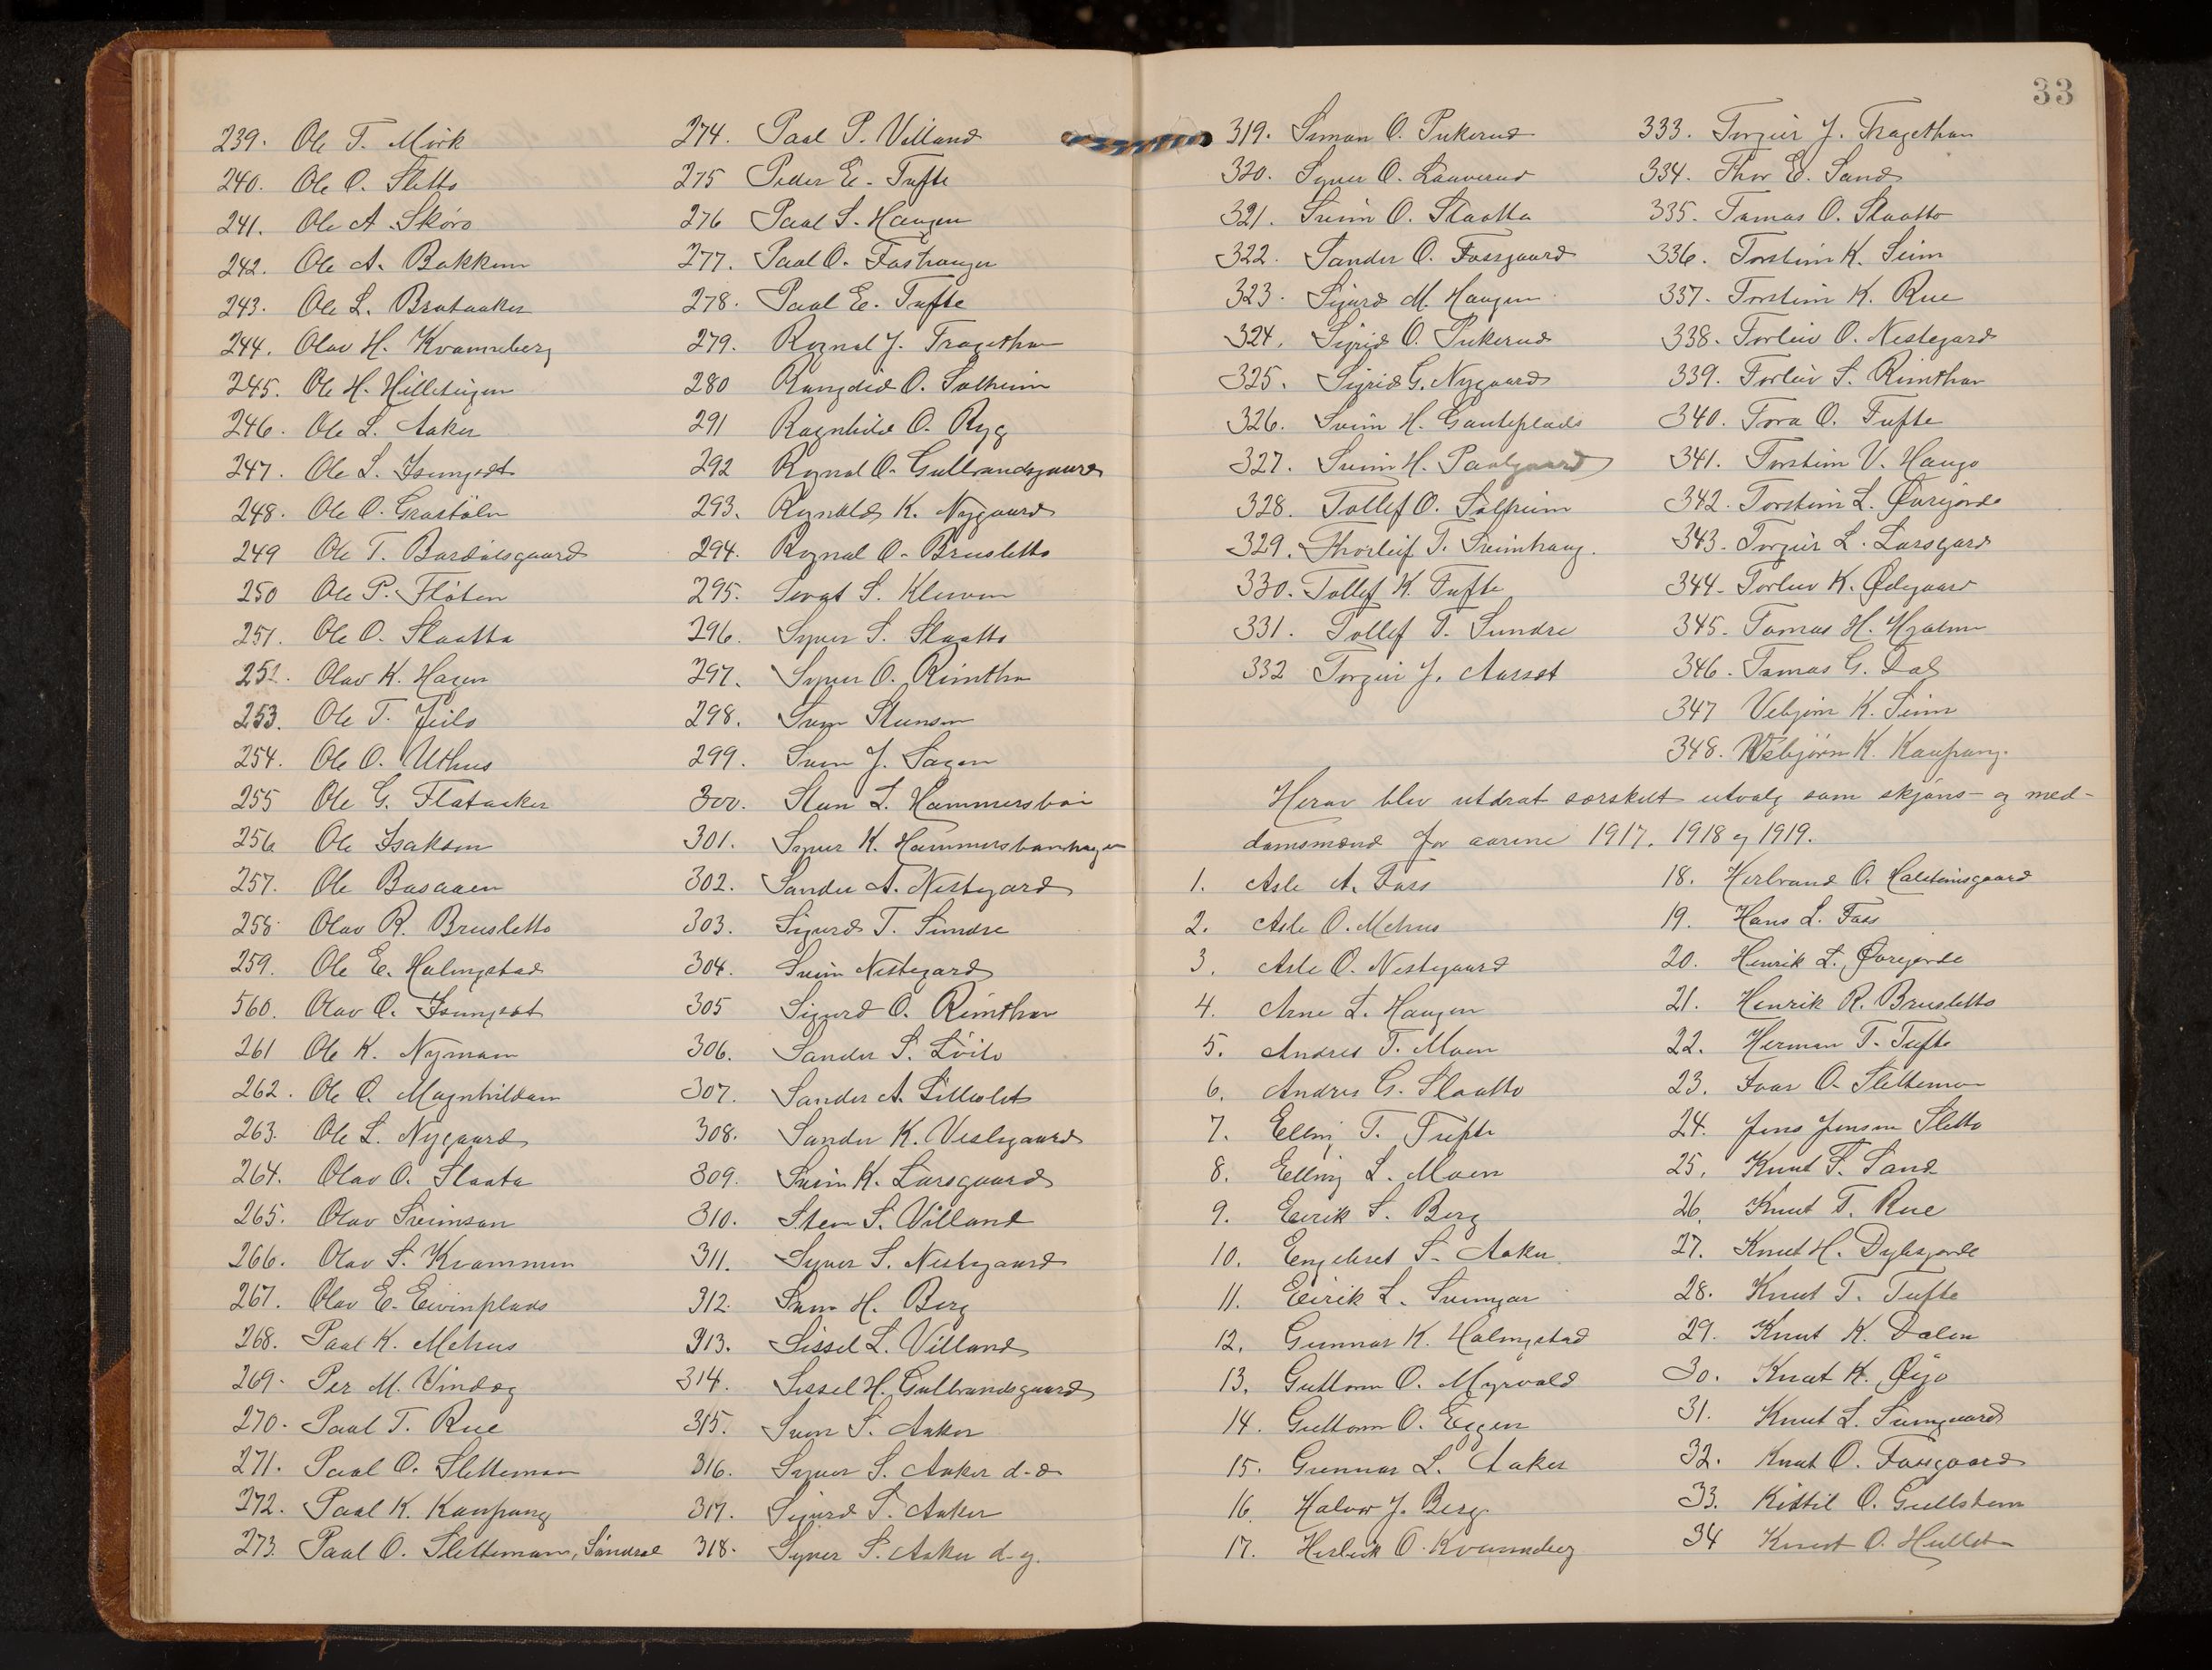 239. Ole T. Mörk
240. Ole O. Sletto
241. Ole A. Sköro
242. Ole A. Bakken
243. Ole L. Brataaker
244. Olav H. Kvanneberg
245. Ole H.
246. Ole L. Aaker
247. Ole L. Isungset
248. Ole O. Grostöln
249 Ole T. Bardalsgaard
250 Ole P. Flöten
251. Ole O. Slaatta
252. Olav K. Hagen
253. Ole T. Jeilo
254. Ole O. Uthus
255 Ole G. Flataaker
256 Ole Isaksen
257. Ole Basaaen
258. Olav R. Brusletto
259. Ole E. Holmgstad
560. Olav O. Isungset
261 Ole K. Nymann
262. Ole O.
263. Ole L. Nygaard
264. Olav O. Slaata
265. Olav Sveinson
266. Olav S. Kvammen
267. Olav E. Eivinplads
268. Paal K. Mehus
269. Per M. Vindeg
270. Paal T. Rue
271. Paal O. Slettemoen
272. Paal K. Kaupang
273. Paal O. Slettemoen, Sündrel
274. Paal P. Villand
275 Peder E. Tufte
276 Paal S. Haugen
277. Paal O.
278. Paal E. Tufte
279. Rognal J. Tragethon
280 O. Solheim
291 Ragnhild O. Ryg
292 Rognal O. Gulbrandsgaard
293. Rognald K. Nygaard
294. Rognal O. Brusletto
295. Sevat S. Kleiven
296. Syver S. Slaatto
297. Syver O. Rimthon
298. Svein Stenson
299. Svein J. Sagen
300. Sten L. Hammersbön
301. Syver K.
302. Sander A. Nestegard
303. Sigurd T. Sundre
304. Svein Nestegard
305 Sigurd O. Rimthon
306. Sander S. Löilo
307. Sander A. Lilleslet
308. Sander K. Veslegaard
309. Svein K. Larsgaard
310. Sten S. Villand
311. Syver S. Nestegaard
312. Svein H. Berg
313. Sissel L. Villand
314. Sissel H. Gulbrandsgaard
315. Sven S. Aaker
316. Syver S. Aaker d.e.
317. Sigurd S. Aaker
318. Syver S. Aaker d.y.
33
319. Simon O. Pukerud
320. Syver O. Laaverud
321. Svein O. Slaatta
322. Sander O. Fossgaard
323. Sigurd M. Haugen
324. Sigrid O. Pukerud
325. Sigrid G. Nygaard
326. Svein H. Gauteplads
327. Svein H. Paalgaard
328. Tollef O. Solheim
329. Thorleif T. Sveinhaug.
330. Tollef K. Tufte
331. Tollef T. Sundre
332 Torgeir J. Aasset
333. Torgeir J. Tragethon
334. Thor E. Sand
335. Tomas O. Slaatto
336. Torstein K. Seim
337. Torstein K. Rue
338. Torleiv O. Nestegard
339. Torleiv S. Rimthon
340. Tora O. Tufte
341. Torstein V. Haugo
342. Torstein L. Övregjorde
343. Torgeir L. Larsgard
344. Torleiv K. Ødegaard
345. Tomas H. Hjalmen
346. Tomas G. Dal
347 Vebjörn K. Seim
348. Vebjörn K. Kaupang.
Herav blev utdrat særskilt utvalg som skjöns- og med-
domsmænd for aarene 1917, 1918 og 1919.
1. Asle A. Foss
2. Asle O. Mehus
3. Asle O. Nestegaard
4. Arne L. Haugen
5. Andres T. Moen
6. Andres G. Slaatto
7. Elling T. Tufte
8. Elling L. Moen
9. Eirik S. Berg
10. Engebret S. Aaker.
11. Eirik L. Svengar
12. Gunnar K. Holmgstad
13. Guttorm O. Myrvold
14. Guttorm O. Eggen
15. Gunnar L. Aaker
16. Halvor J. Berg.
17. O. Kvanneberg
18. Herbrand O. Halsteinsgaard
19. Hans L. Foss
20. Henrik L. Øvregjorde
21. Henrik R. Brusletto
22. Herman T. Tufte
23. Ivar O. Slettemoen
24. Jens Jensen Sletto
25. Knut F. Sand
26. Knut T. Rue
27. Knut H. Dylesgjorde
28. Knut T. Tufte
29. Knut K. Dalen
30. Knut K. Øijo
31. Knut L. Sveingaard
32. Knut O. Fossgaard
33. Kittil O. Gullstein
34 Knut O.